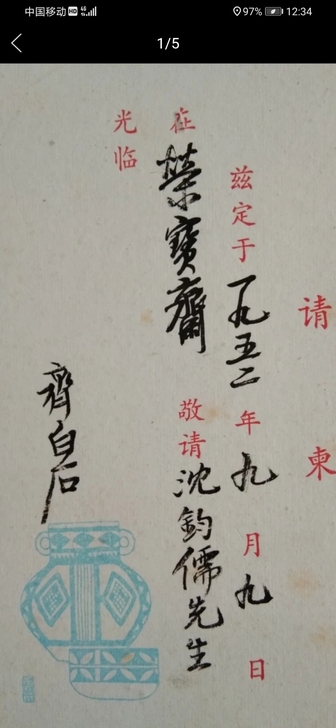 中国移动 HD 4G 97% 12:34
1/5
请柬
兹定于一九五二年九月九日
在榮寶齋 敬请沈鈞儒先生
光临
齊白石